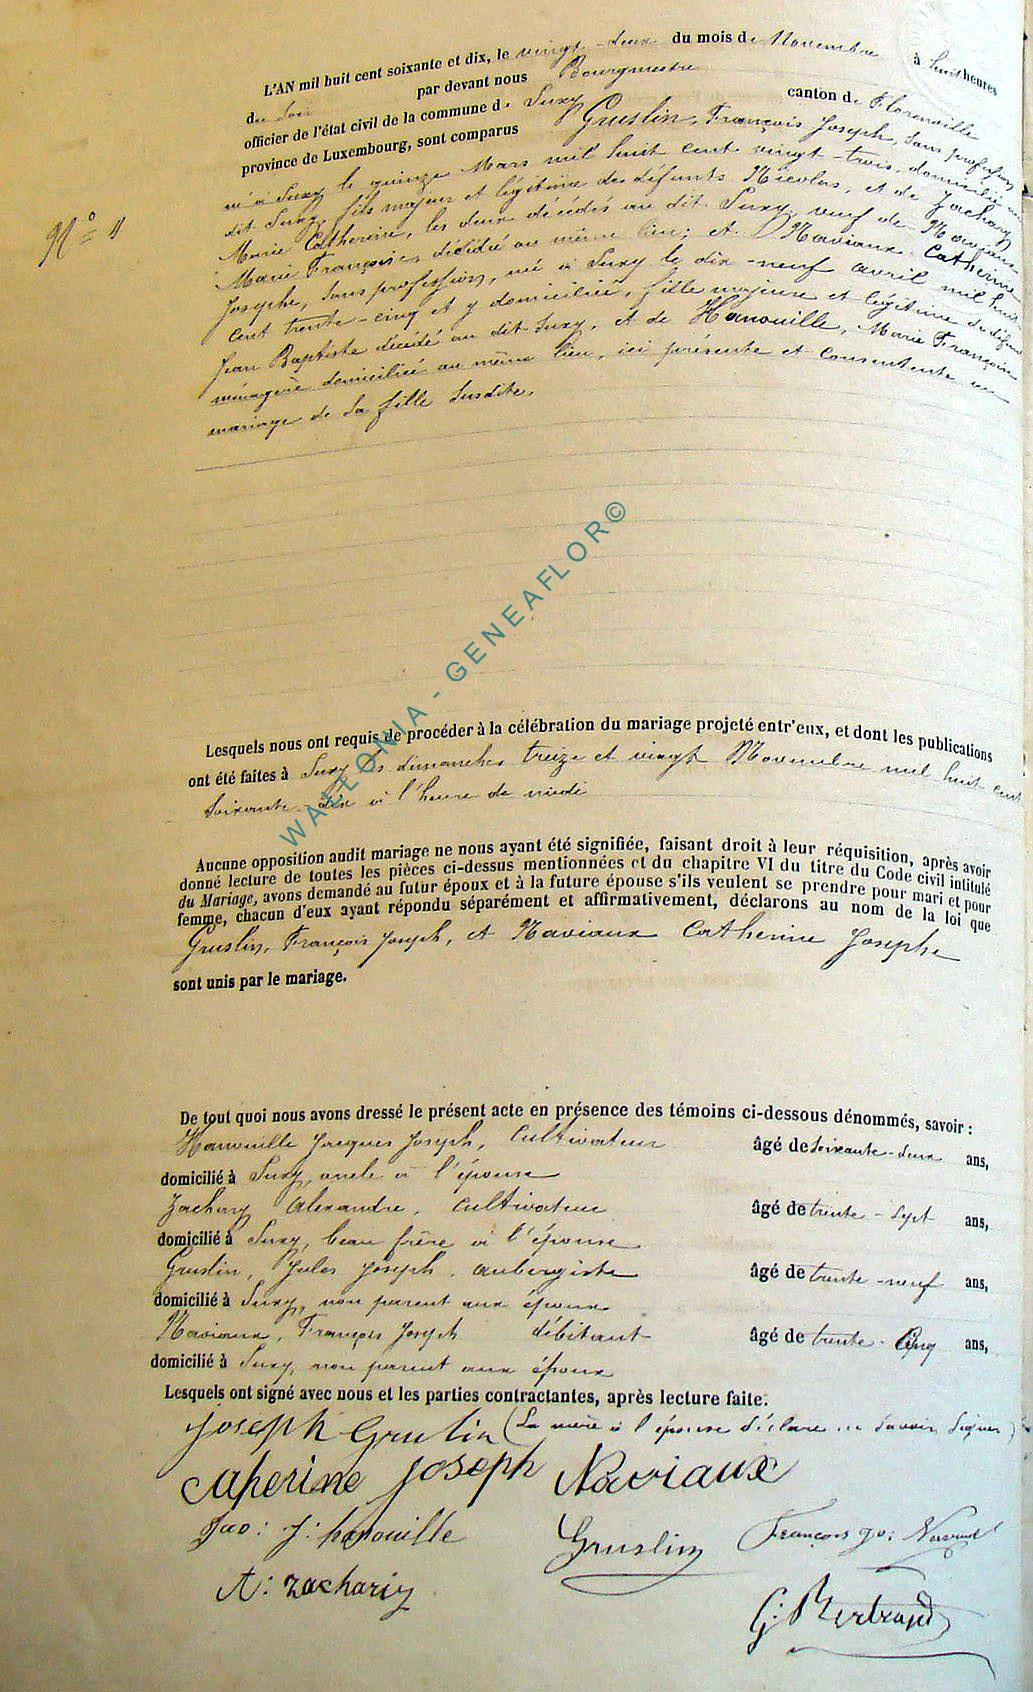 L'AN mil huit cent soixante et dix, le vingt-deux du mois de Novembre à huit heures
du soir par devant nous Bourgmestre
officier de l'état civil de la commune de Suxy canton de Florenville
province de Luxembourg, sont comparus Gruslin, François Joseph, sans profession
né à Suxy le quinze Mars mil huit cent vingt-trois, domicilié au
dit Suxy, fils majeur et légitime des défunts Nicolas, et de Zachary
Marie Catherine, les deux décédés au dit Suxy, veuf de Naviaux
Marie Françoise, décédée au même lieu; et Naviaux Catherine
Josephe, sans profession, née à Suxy le dix-neuf avril mil huit
cent trente-cinq et y domiciliée, fille majeure et légitime du défunt
Jean Baptiste décédé au dit Suxy, et de Hanouille, Marie Françoise
ménagère domiciliée au même lieu, ici présente et consentente au
mariage de sa fille susdite.
N° 11
WALLONIA - GENEAFLOR©
Lesquels nous ont requis de procéder à la célébration du mariage projeté entr'eux, et dont les publications
ont été faites à Suxy les dimanches treize et vingt Novembre mil huit cent
soixante-dix à l'heure de midi
Aucune opposition audit mariage ne nous ayant été signifiée, faisant droit à leur réquisition, après avoir
donné lecture de toutes les pièces ci-dessus mentionnées et du chapitre VI du titre du Code civil intitulé
du Mariage, avons demandé au futur époux et à la future épouse s'ils veulent se prendre pour mari et pour
femme, chacun d'eux ayant répondu séparément et affirmativement, déclarons au nom de la loi que
Gruslin, François Joseph, et Naviaux Catherine Josephe
sont unis par le mariage.
De tout quoi nous avons dressé le présent acte en présence des témoins ci-dessous dénommés, savoir :
Hanouille Jacques Joseph, Cultivateur âgé de soixante-deux ans,
domicilié à Suxy, oncle à l'épouse
Zachary Alexandre, cultivateur âgé de trente-sept ans,
domicilié à Suxy, beau frère à l'épouse
Gruslin, Jules Joseph, aubergiste âgé de trente-neuf ans,
domicilié à Suxy, non parent aux époux
Naviaux, François Joseph débitant âgé de trente-cinq ans,
domicilié à Suxy, non parent aux époux
Lesquels ont signé avec nous et les parties contractantes, après lecture faite.
Joseph Gruslin (La mère à l'épouse déclare ne savoir signer)
Caherine Joseph Naviaux
Jac: J: hanouille Gruslin François Jo: Naviaux
A: zachariy
G: Bertrand